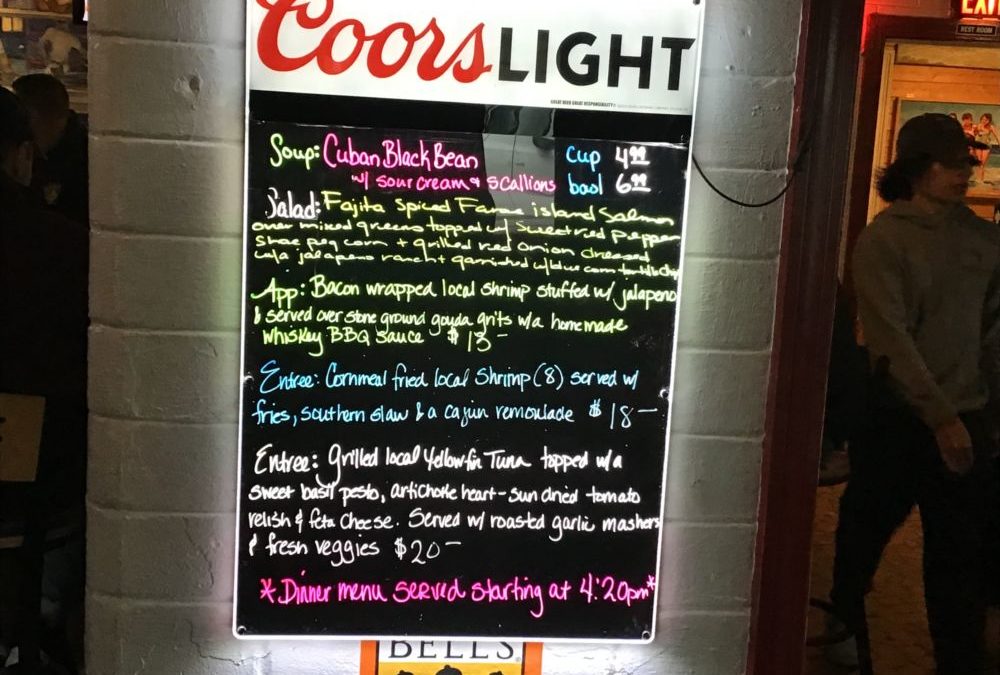 Coors LIGHT
GREAT BEER GREAT RESPONSIBILITY
EXIT
REST ROOM
Soup: Cuban Black Bean cup 4.99
w/ sour cream & scallions baol 6.99
Salad: Fajita Spiced Faroe island Salmon
over mixed greens topped w/ sweet red pepper
shoe peg corn + grilled red onion dressed
w/a jalapeno ranch + garnished w/blue corn tortilla chips
App: Bacon wrapped local shrimp stuffed w/ jalapeno
& served over stone ground gouda grits w/a homemade
whiskey BBQ sauce $13-
Entree: Cornmeal fried local shrimp (8) served w/
fries, southern slaw & a cajun remoulade $18-
Entree: Grilled local Yellowfin Tuna topped w/a
sweet basil pesto, artichoke heart-sun dried tomato
relish & feta cheese. Served w/ roasted garlic mashers
& fresh veggies $20-
*Dinner menu served starting at 4:20pm*
BELL'S